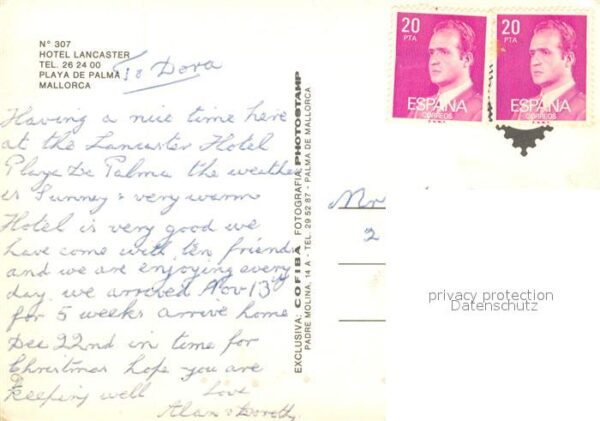 Nº 307
HOTEL LANCASTER
TEL. 26 24 00
PLAYA DE PALMA
MALLORCA
To Dora
Having a nice time here
at the Lancaster Hotel
Playa De Palma the weather
is Sunney & very warm
Hotel is very good we
have come with ten friends
and we are enjoying every
day. we arrived Nov 13th
for 5 weeks arrive home
Dec 22nd in time for
Christmas hope you are
keeping well Love
Alan & Doroth
EXCLUSIVA: COFIBA FOTOGRAFIA PHOTOSTAMP
PADRE MOLINA, 14 A - TEL. 29 52 87 - PALMA DE MALLORCA
20
PTA
ESPAÑA
CORREOS
20
PTA
ESPAÑA
CORREOS
Mr
2
privacy protection
Datenschutz